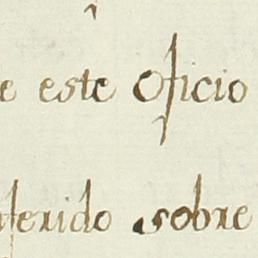 e este oficio
ferido sobre